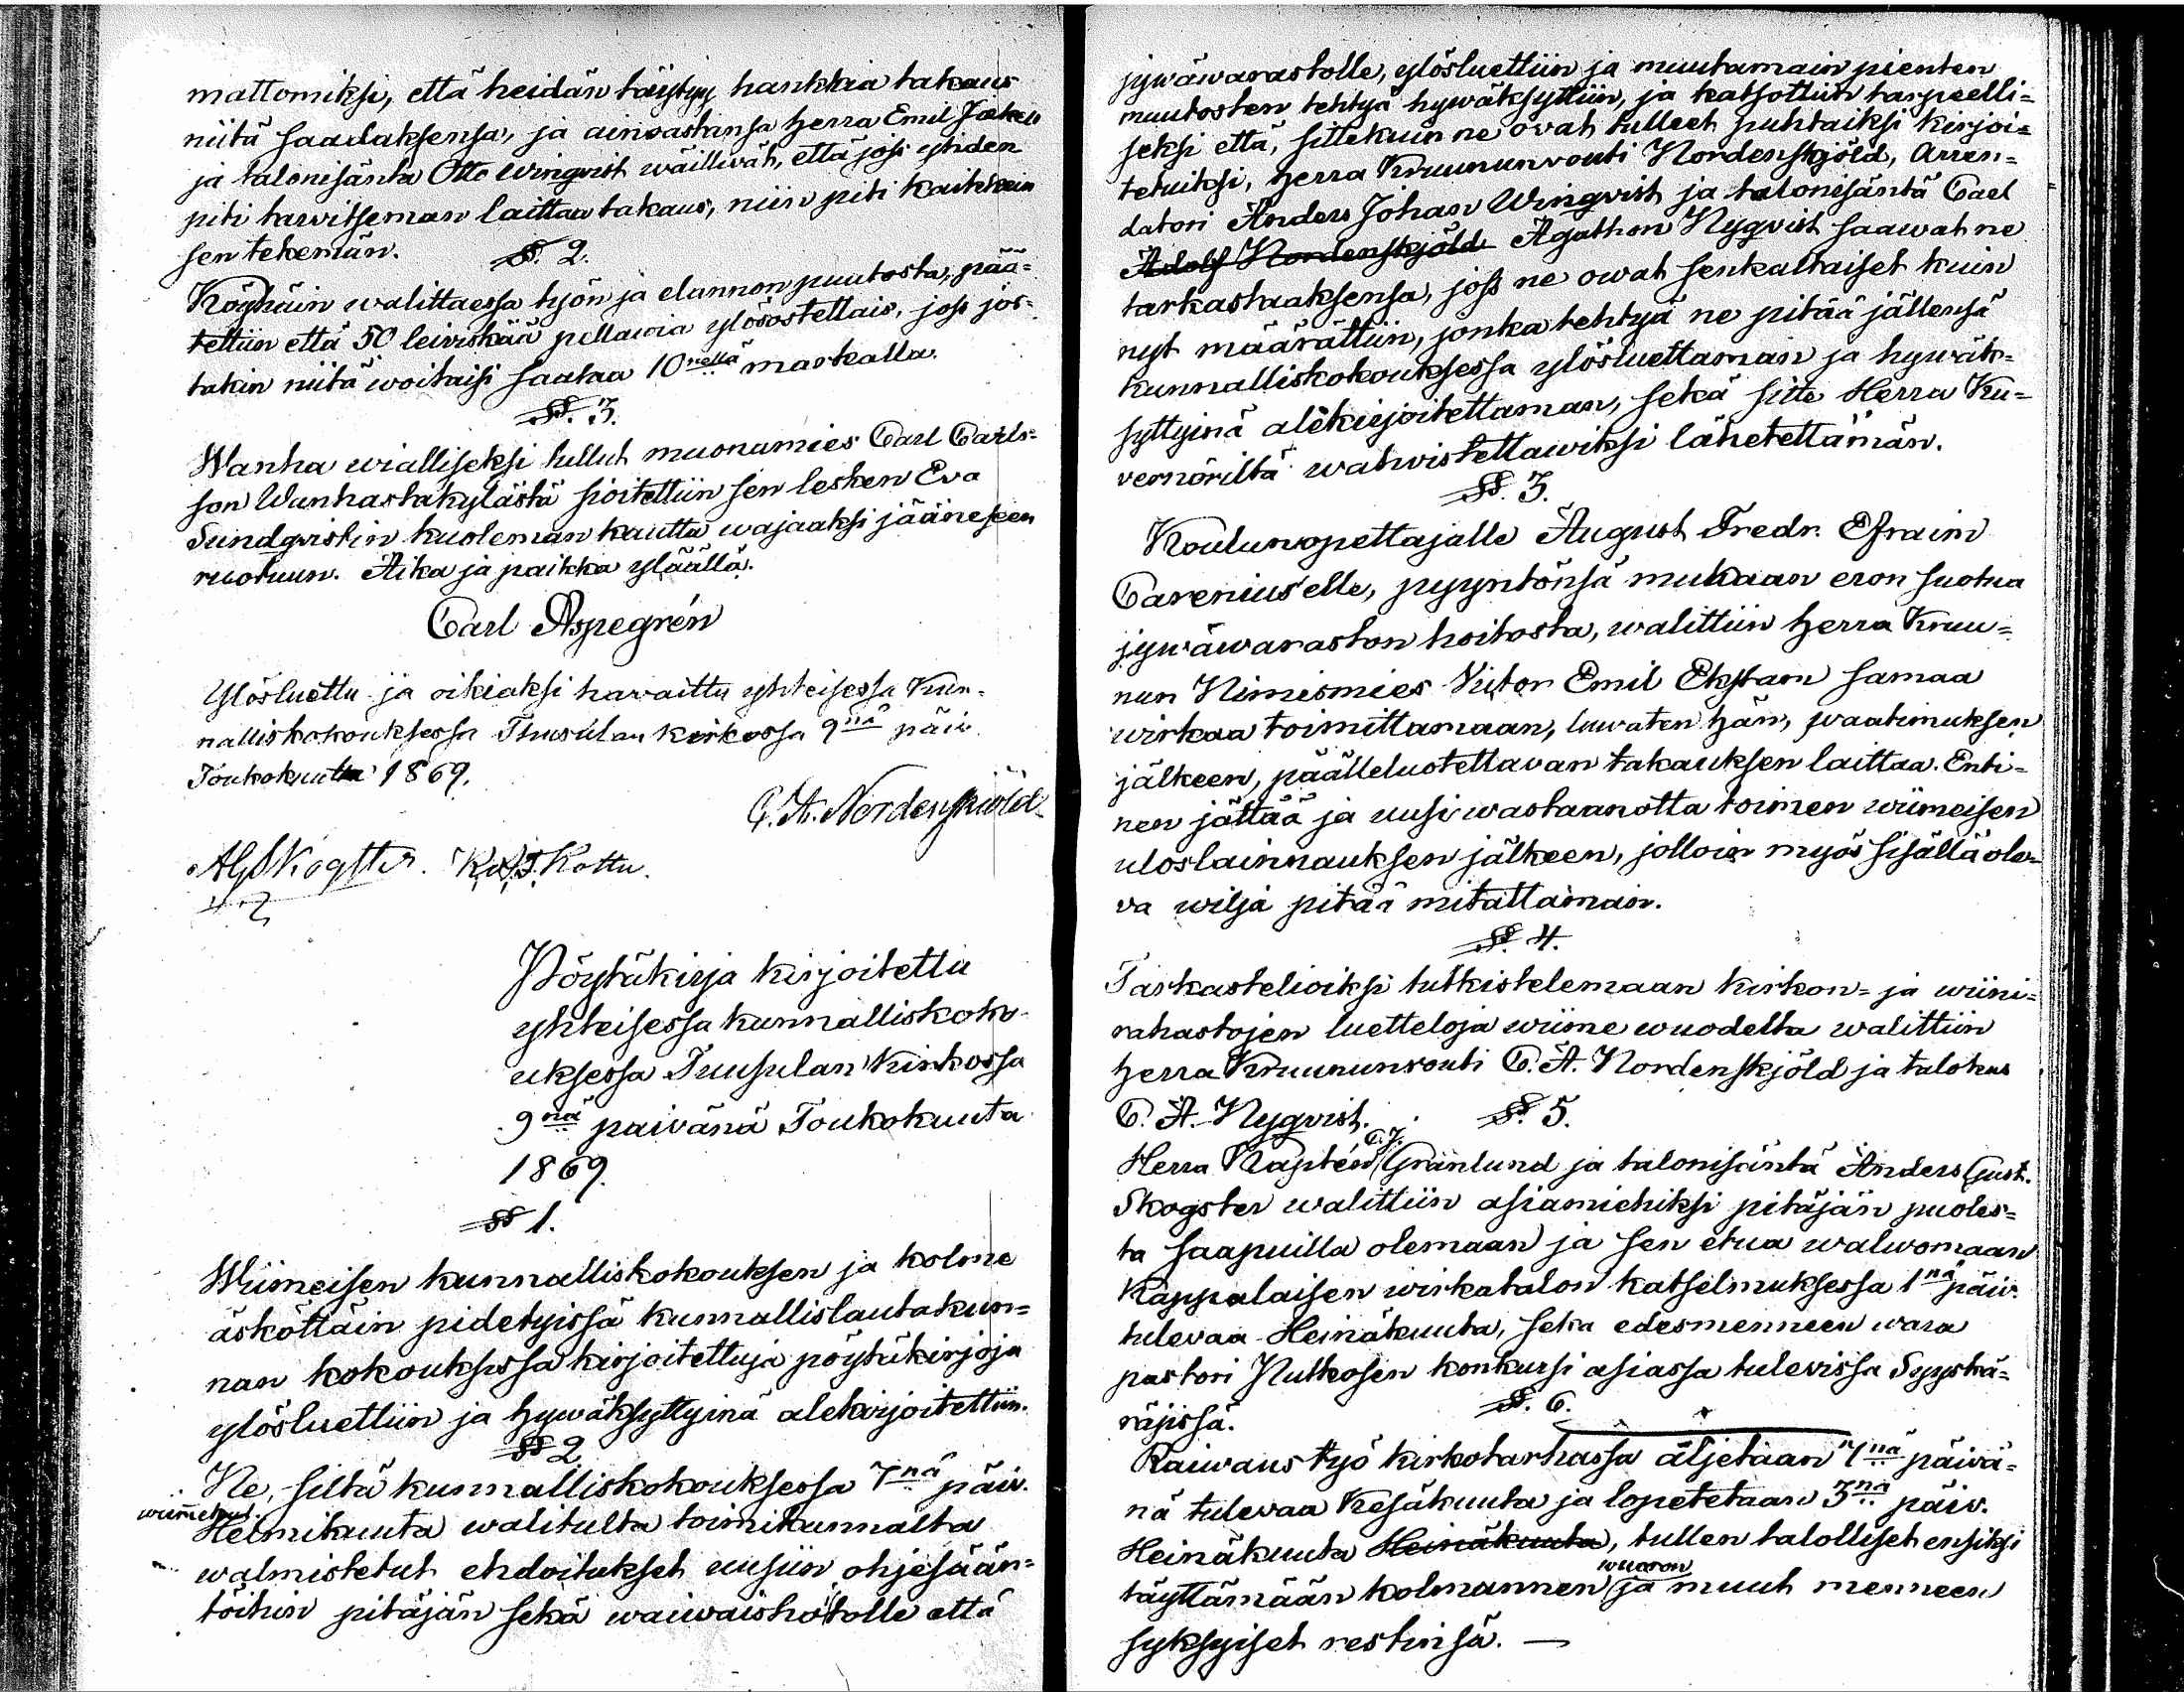 mattomiksi, että heidän täytyy hankkia takaus
niitä saadaksensa, ja ainoastansa Herra Emil Jakell
ja talonisäntä Otto Wingvist wäillivät, että jos yhiden
piti tarwitseman laittaa takaus, niin piti kaikkein
sen tekemän.
§. 2.
Köyhäin walittaessa työn ja elannon puutosta, pää=
tettiin että 50 leiwiskää pellawia ylösostettais, joss jos=
takin niitä woitaisi saataa 10nellä markalla.
§§. 3.
Wanha wialliseksi tullut muonamies Carl Carls=
son Wanhastakylästä sioitettiin sen lesken Eva
Sundqvistin kuoleman kautta wajaaksi jääneseen
ruotuun. Aika ja paikka ylääl̈lä.
Carl Aspegrén
Ylösluettu ja oikiaksi havaittu yhteisessä Kun-
nalliskokouksessa Thusulan kirkossa 9nä päiv
Toukokuuta 1869.
C. A. Nordenskiöld
AGSkogster. K. J. Kottu.
Pöytäkirja kirjoitettu
yhteisessä kunnalliskoko-
uksessa Tuusulan Kirkossa
9nä paivänä Toukokuuta
1869.
§§ 1.
Wiimeisen kunnalliskokouksen ja kolme
äsköttäin pidetyissä kunnallislautakun=
nan kokouksissa kirjoitettuja pöytäkirjoja
ylösluettiin ja hywäksyttyinä alekirjoitettiin.
§§ 2
Ne, siltä kunnalliskokouksessa 7nä päiv.
wiimeksi
Helmikuuta walitulta toimikunnalta
walmistetut ehdoitukset uusiin ohjesään=
töihin pitäjän sekä waiwaishoitolle että
jywäwarastolle, ylösluettiin ja muutamain pienten
muutosten tehtyä hywäksyttiin, ja katsottiin tarpeelli=
seksi että, sittekuin ne ovat tulleet puhtaiksi kirjoi=
tetuiksi, Herra Kruununvouti Nordenskjöld, Arren=
datori Anders Johan Wingvist ja talonisäntä Carl
Adolf Nordenskjöld Agathon Nyqvist saawat ne
tarkastaaksensa, joss ne owat senkaltaiset kuin
nyt määrättiin, jonka tehtyä ne pitää jällensä
kunnalliskokouksessa ylösluettaman ja hywäk=
syttyinä alekirjoitettaman, sekä sitte Herra Ku=
vernöriltä wahwistettawiksi lähetettämän.
§§. 3.
Koulunopettajalle August Fredr. Efraim
Carenius'elle, pyyntönsä mukaan eron suotua
jywäwaraston hoitosta, walittiin Herra Kruu=
nun Nimismies Victor Emil Ekstam samaa
wirkaa toimittamaan, luwaten hän, waatimuksen
jälkeen, päälleluotettavan takauksen laittaa. Enti=
nen jättää ja uusi wastaanotta toimen wiimeisen
uloslainnauksen jälkeen, jolloin myös sisällä ole=
va wilja pitää mitattaman.
§§. 4.
Tarkastelioiksi tutkistelemaan kirkon= ja wiini=
rahastojen luetteloja wiime wuodelta walittiin
Herra Kruununvouti C. A. Nordenskjöld ja talokas
C. A. Nyqvist.
§§. 5.
Herra Kaptén C. J. Granlund ja talonisäntä Anders Gust.
Skogster walittiin asiamiehiksi pitäjän puoles=
ta saapuilla olemaan ja sen etua walwomaan
Kappalaisen wirkatalon katselmuksessa 1nä päiv.
tulevaa Heinäkuuta, sekä edesmenneen wara
pastori Nutkosen konkursi asiassa tulevissa Syyskä=
räjissä.
§. 6.
Raiwaus työ kirkotarhassa aljetaan 7nä päivä=
nä tulevaa Kesäkuuta ja lopetetaan 3nä päiv.
Heinäkuuta Heinäkuuta, tullen talolliset ensiksi
täyttämään kolmannen wuoron ja muut menneen
syksyiset restinsä. —